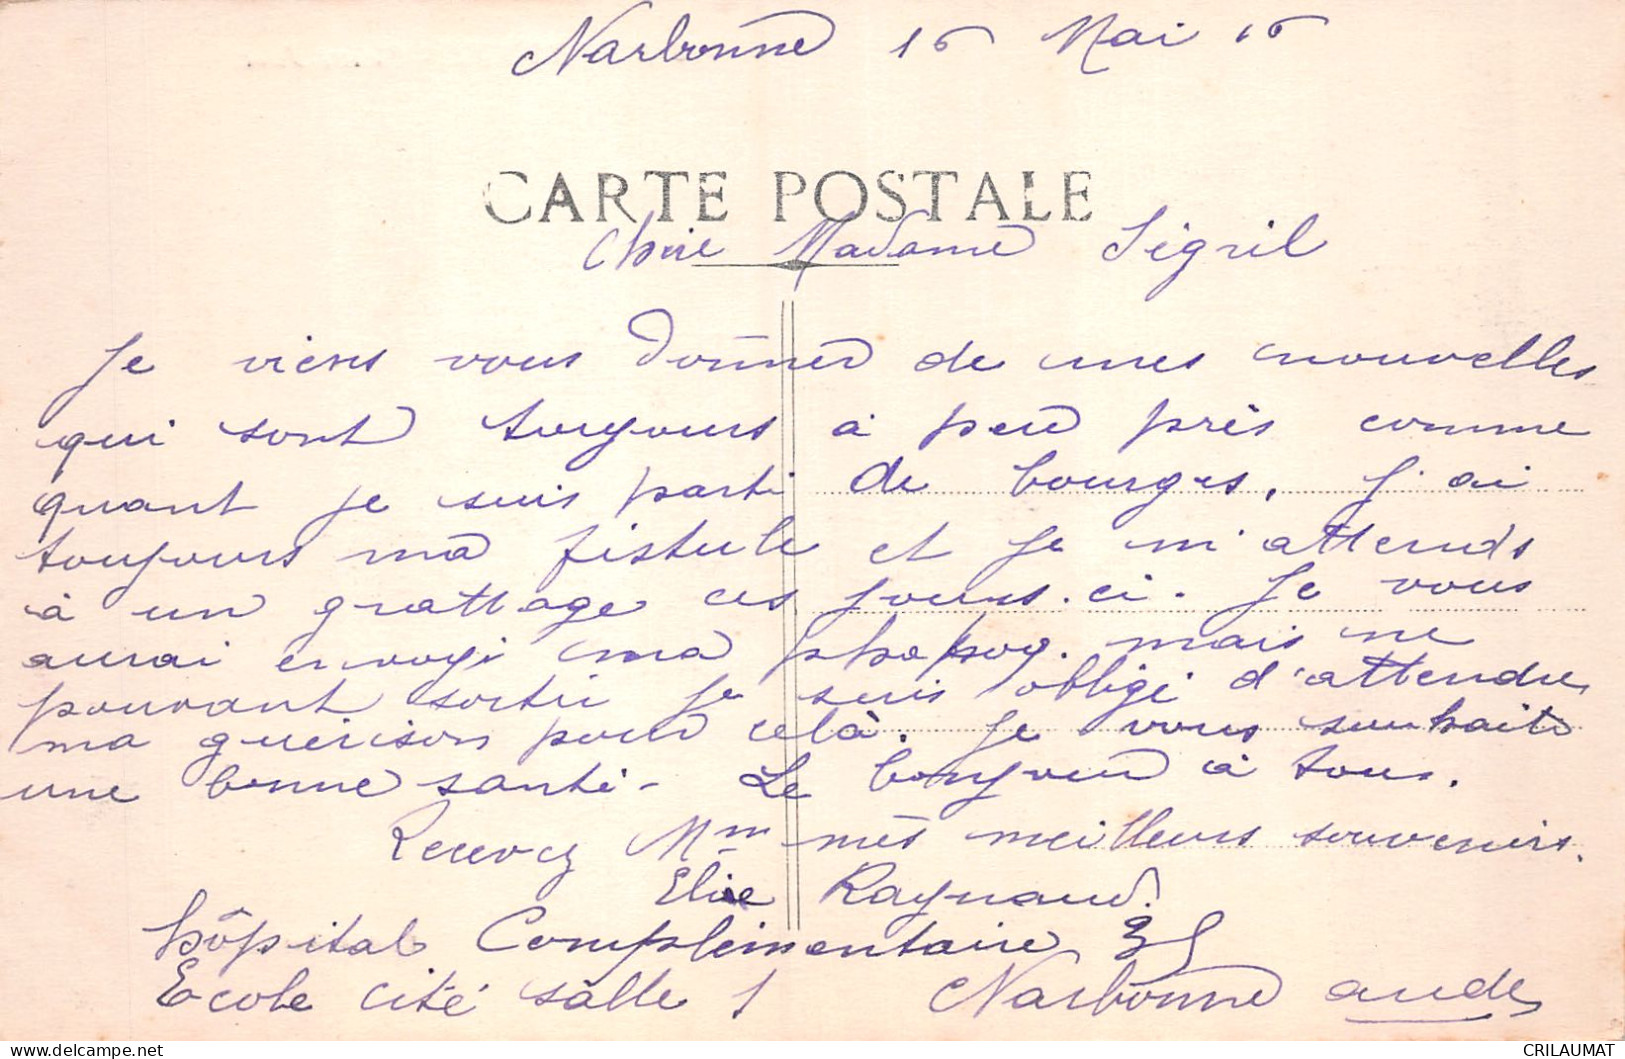 Narbonne 16 Mai 16
CARTE POSTALE
Chère Madame Ségril
Je viens vous donner de mes nouvelles
qui sont toujours à peu près comme
quant je suis parti de bourges. J'ai
toujours ma fistule et je m'attends
à un grattage ces jours-ci. Je vous
aurai envoyé ma photog. mais ne
pouvant sortir je suis obligé d'attendre
ma guérison pour celà. Je vous souhaite
une bonne santé - Le bonjour à tous.
Recevez Mme mes meilleurs souvenirs.
Elie Raynaud.
hôpital Complémentaire 35
Ecole cité salle 1 Narbonne aude
CRILAUMAT